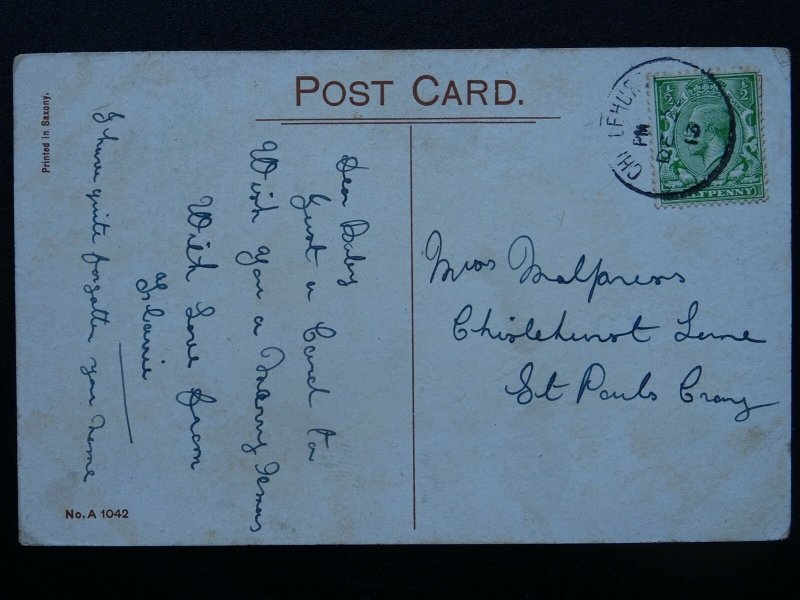 POST CARD.
Printed in Saxony.
Dear Baby
Just a Card to
Wish you a Merry Xmas
With Love from
I have quite forgotten your name
No. A 1042
½ ½
HALFPENNY
CHISLEHURST
PM
DE
13
Malpress
Chislehurst
St Pauls Cray